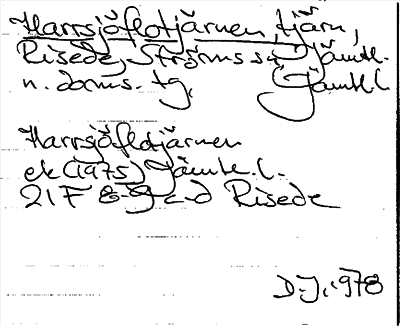 Harrsjöflotjärnen, tjärn,
Risede, Ströms sn Jämtl.
n. doms. tg, Jämtl. l
Harrsjöflotjärnen
ek (1975) Jämtl. l.
21 F 8-9 c-d Risede
D.J. 1978